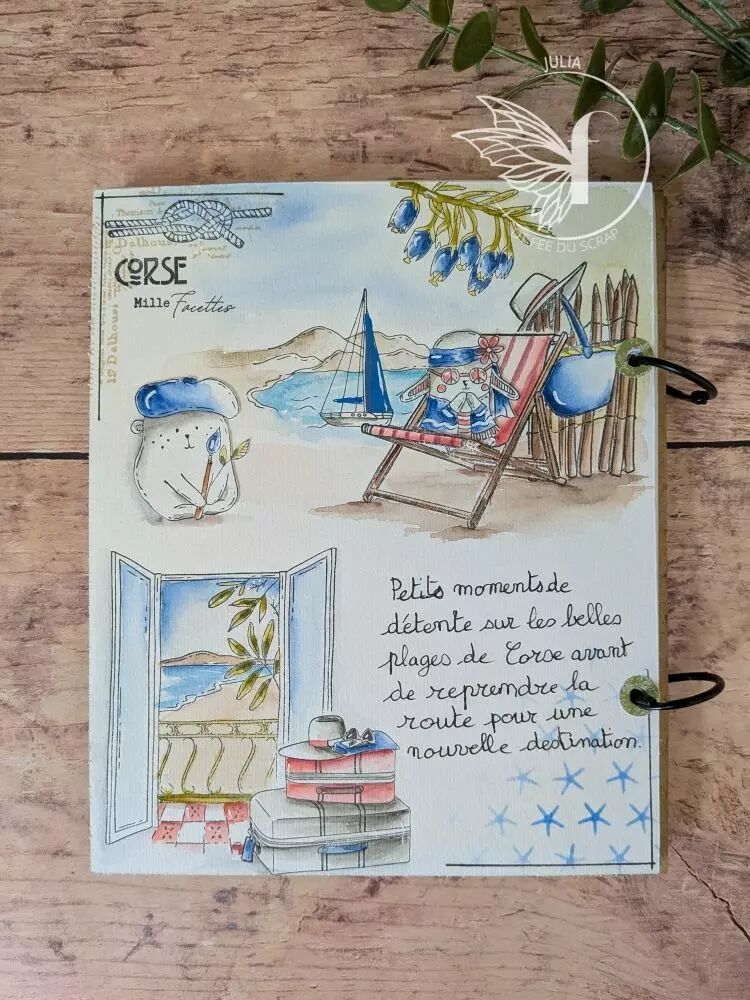 JULIA
f
FÉE DU SCRAP
Thomson &
Dalhousi
15 Dalhousi
CORSE
Mille Facettes
Petits moments de
détente sur les belles
plages de Corse avant
de reprendre la
route pour une
nouvelle destination.